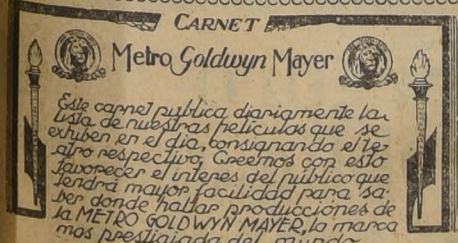 CARNET
Metro Goldwyn Mayer
Este carnet publica diariamente la
lista de nuestras peliculas que se
exhiben en el dia, consignando el te
atro respectivo. Creemos con esto
favorecer el interes del publico que
tendrá mayor facilidad para sa-
ber donde hallar producciones de
la METRO GOLDWYN MAYER, la marca
mas prestigiada del mundo